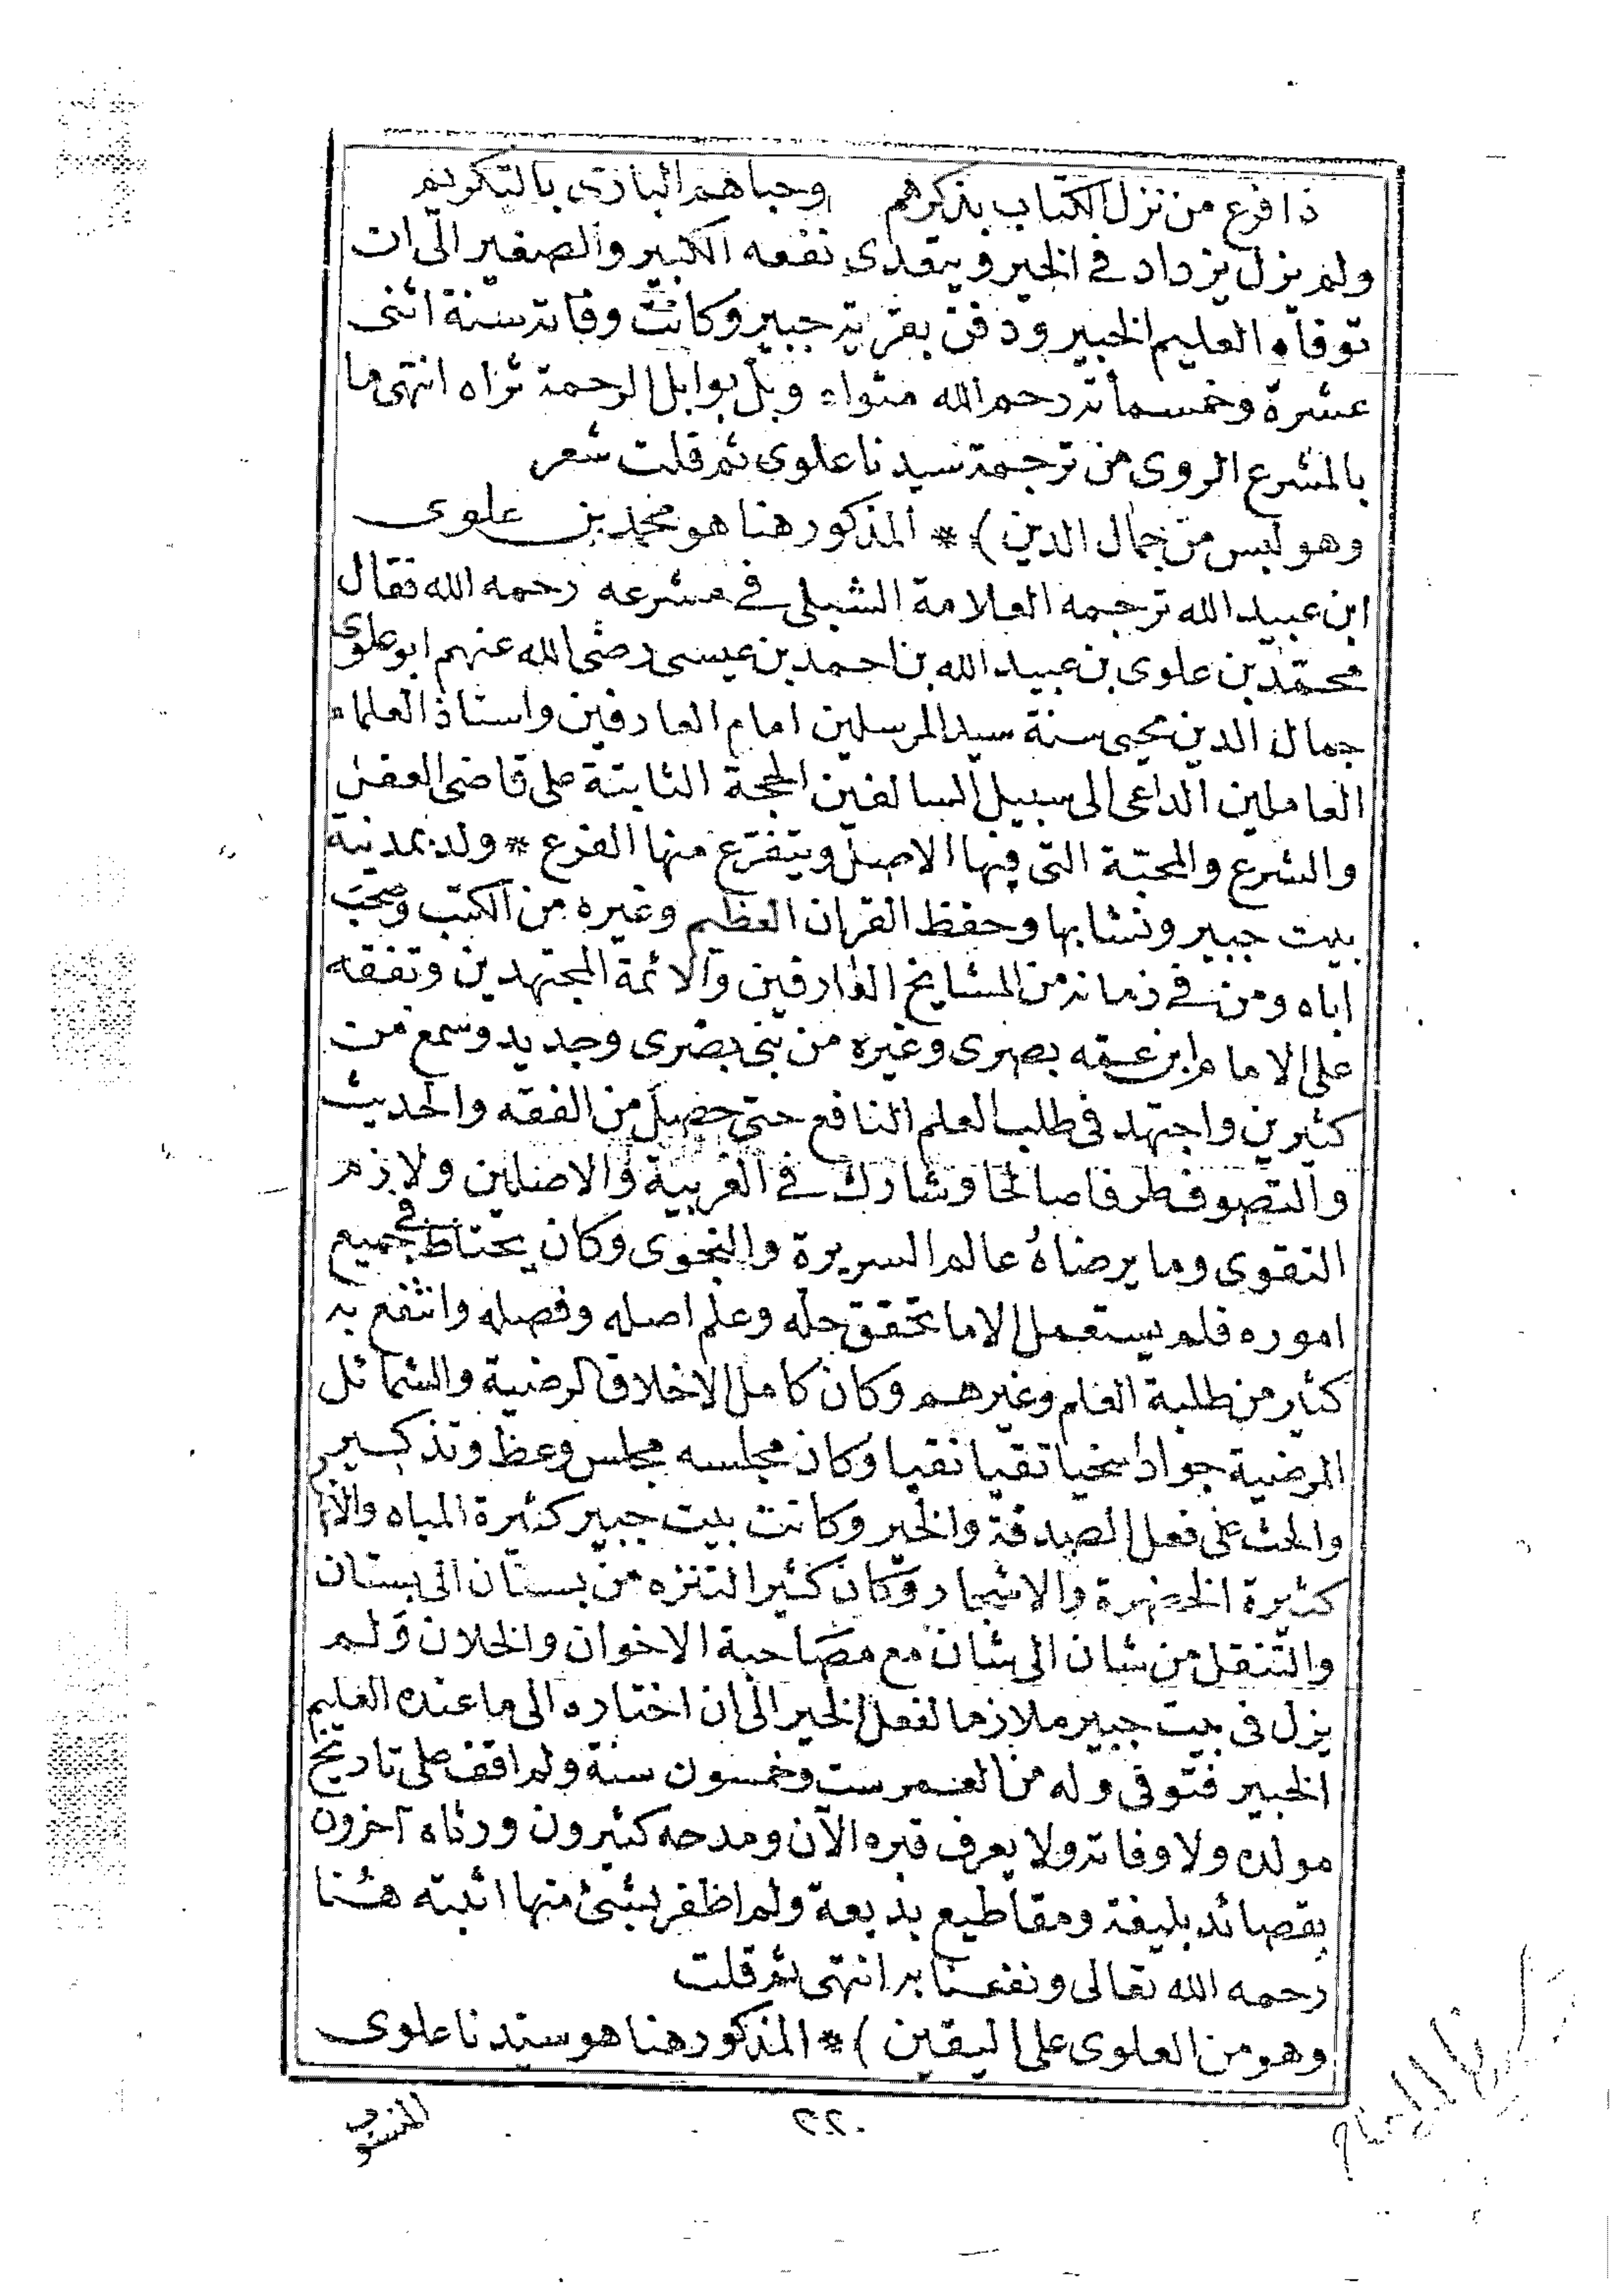 ذا فرع من نزل الكتاب بذكرهم وحباهم البارى بالتكريم
ولم يزل يزداد في الخير ويتعدى نفعه الكبير والصغير الى ان
توفاه العليم الخبير ودفن بقرية جبير وكانت وفاته سنة اثنى
عشرة وخمسمائة رحم الله مثواه وبل بوابل الرحمة ثراه انتهى ما
بالمشرع الروى من ترجمة سيدنا علوى ثم قلت شعر
وهو ليس من جمال الدين ) * المذكور هنا هو محمد بن علوى
ابن عبيد الله ترجمه العلامة الشبلى في مشرعه رحمه الله فقال
محمّد بن علوى بن عبيد الله بن احمد بن عيسى رضى الله عنهم ابو علوى
جمال الدين محيى سنة سيد المرسلين امام العارفين واستاذ العلماء
العاملين الداعى الى سبيل السالفين الحجة الثابتة على قاضى العقل
والشرع والمحبّة التى فيها الاصل ويتفرّع منها الفرع * ولد بمدينة
بيت جبير ونشا بها وحفظ القران العظيم وغيره من الكتب وصحب
اباه ومن في زمانه من المشايخ العارفين والائمة المجتهدين وتفقه
على الامام ابن عمه بصرى وغيره من بنى بصرى وجديد وسمع من
كثيرين واجتهد فى طلب العلم النافع حتى حصل من الفقه والحديث
والتصوف طرفا صالحا وشارك في العربية والاصلين ولازم
التقوى وما يرضاهُ عالم السريرة والنجوى وكان يحتاط في جميع
اموره فلم يستعمل الا ما تحقق حله وعلم اصله وفصله وانتفع به
كثير من طلبة العلم وغيرهم وكان كامل الاخلاق الرضية والشمائل
المرضية جوادا سخيا تقيا نقيا وكان مجلسه مجلس وعظ وتذكير
والحث على فعل الصدقة والخير وكانت بيت جبير كثيرة المياه
كثيرة الخضرة والاشجار وكان كثير التنزه من بستان الى بستان
والتنقل من شان الى شان مع مصاحبة الاخوان والخلان ولم
يزل فى بيت جبير ملازما لفعل الخير الى ان اختاره الى ما عنده العليم
الخبير فتوفى وله من العمر ست وخمسون سنة ولم اقف على تاريخ
مولده ولا وفاته ولا يعرف قبره الآن ومدحه كثيرون ورثاه آخرون
بقصائد بليغة ومقاطيع بديعة ولم اظفر بشئ منها اثبته هُنا
رحمه الله تعالى ونفعنا به انتهى ثم قلت
وهو من العلوى على اليقين ) * المذكور هنا هو سيدنا علوى
المنسوب
٢٢٠